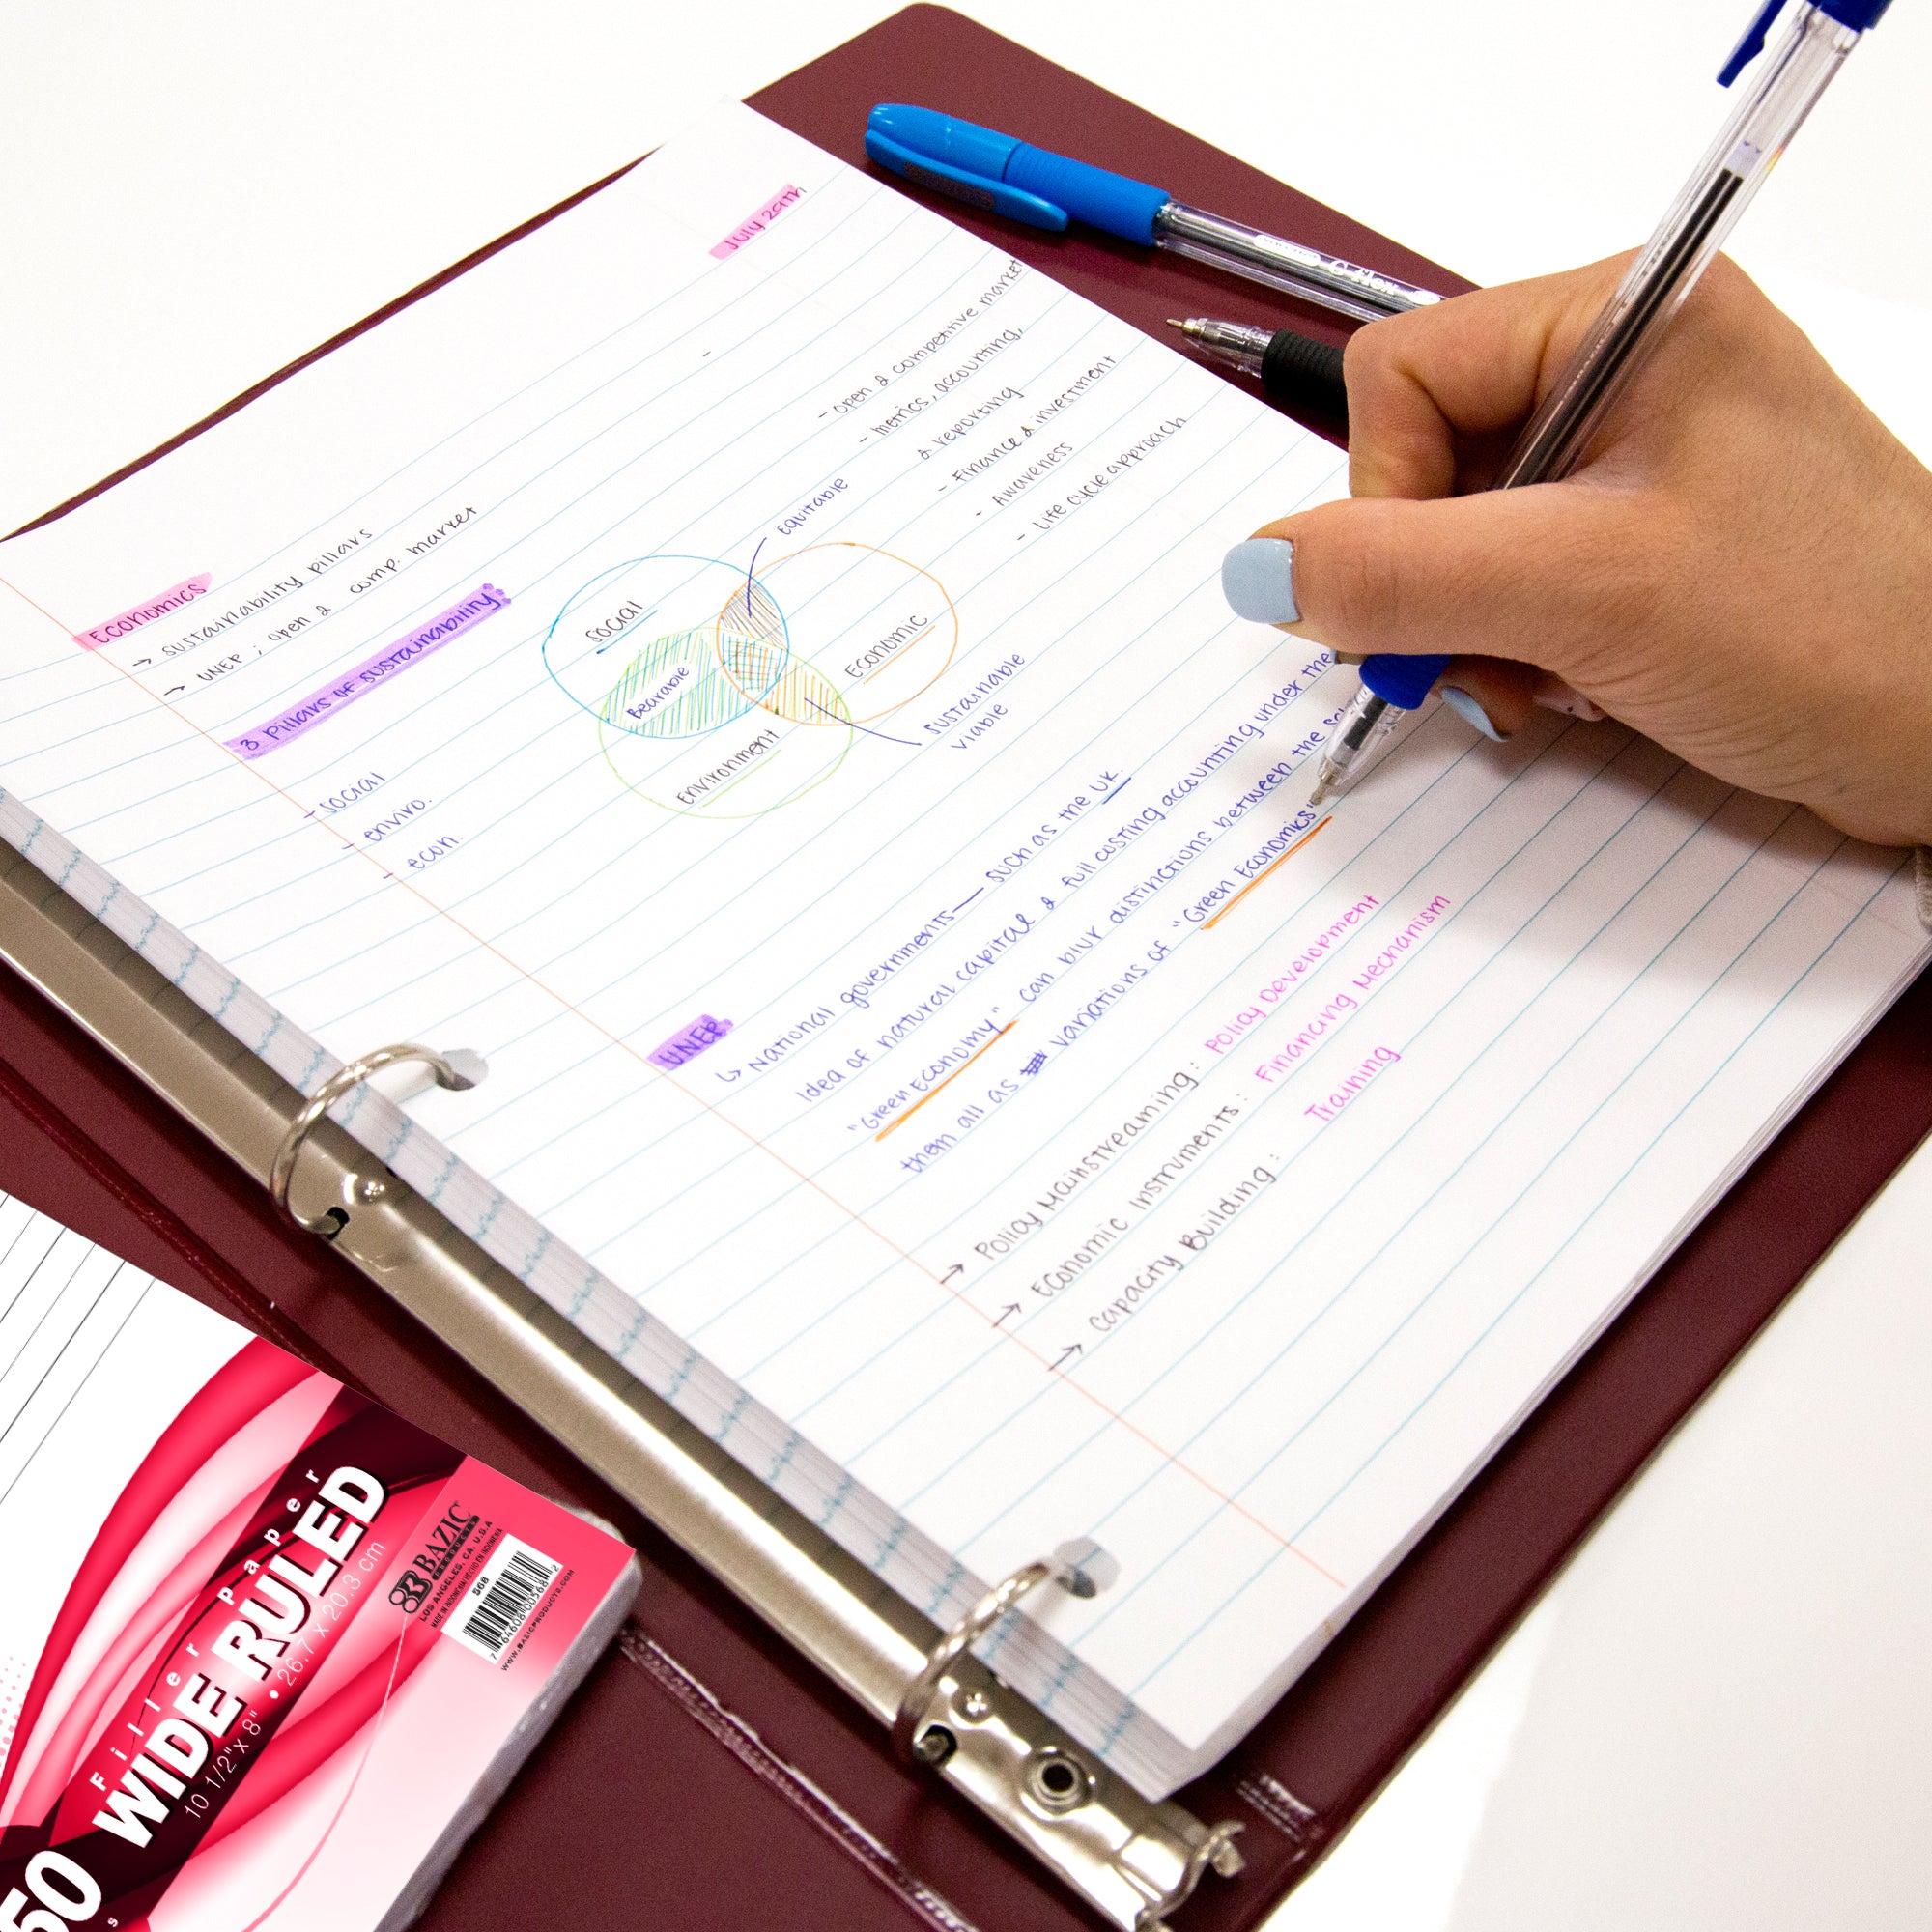 July 29th
Economics
→ sustainability pillars
→ UNEP ; open & comp. market
3 pillars of sustainability
- social
- enviro.
- econ.
social
Economic
Environment
Bearable
Equitable
sustainable
viable
- open & competitive market
- metrics, accounting,
& reporting
- Finance & investment
- Awareness
- Life cycle approach
UNEP
↳ National governments — such as the UK.
Idea of natural capital & full costing accounting under the
"Green Economy" can blur distinctions between the
them all as variations of "Green Economics"
→ Policy Mainstreaming: Policy Development
→ Economic Instruments: Financing Mechanism
→ Capacity Building: Training
G-Flex
Filler Paper
WIDE RULED
10 1/2" x 8" • 26.7 x 20.3 cm
50
BAZIC
PRODUCTS
LOS ANGELES, CA, U.S.A
MADE IN INDONESIA/HECHO EN INDONESIA
568
7 64608 00568 2
WWW.BAZICPRODUCTS.COM